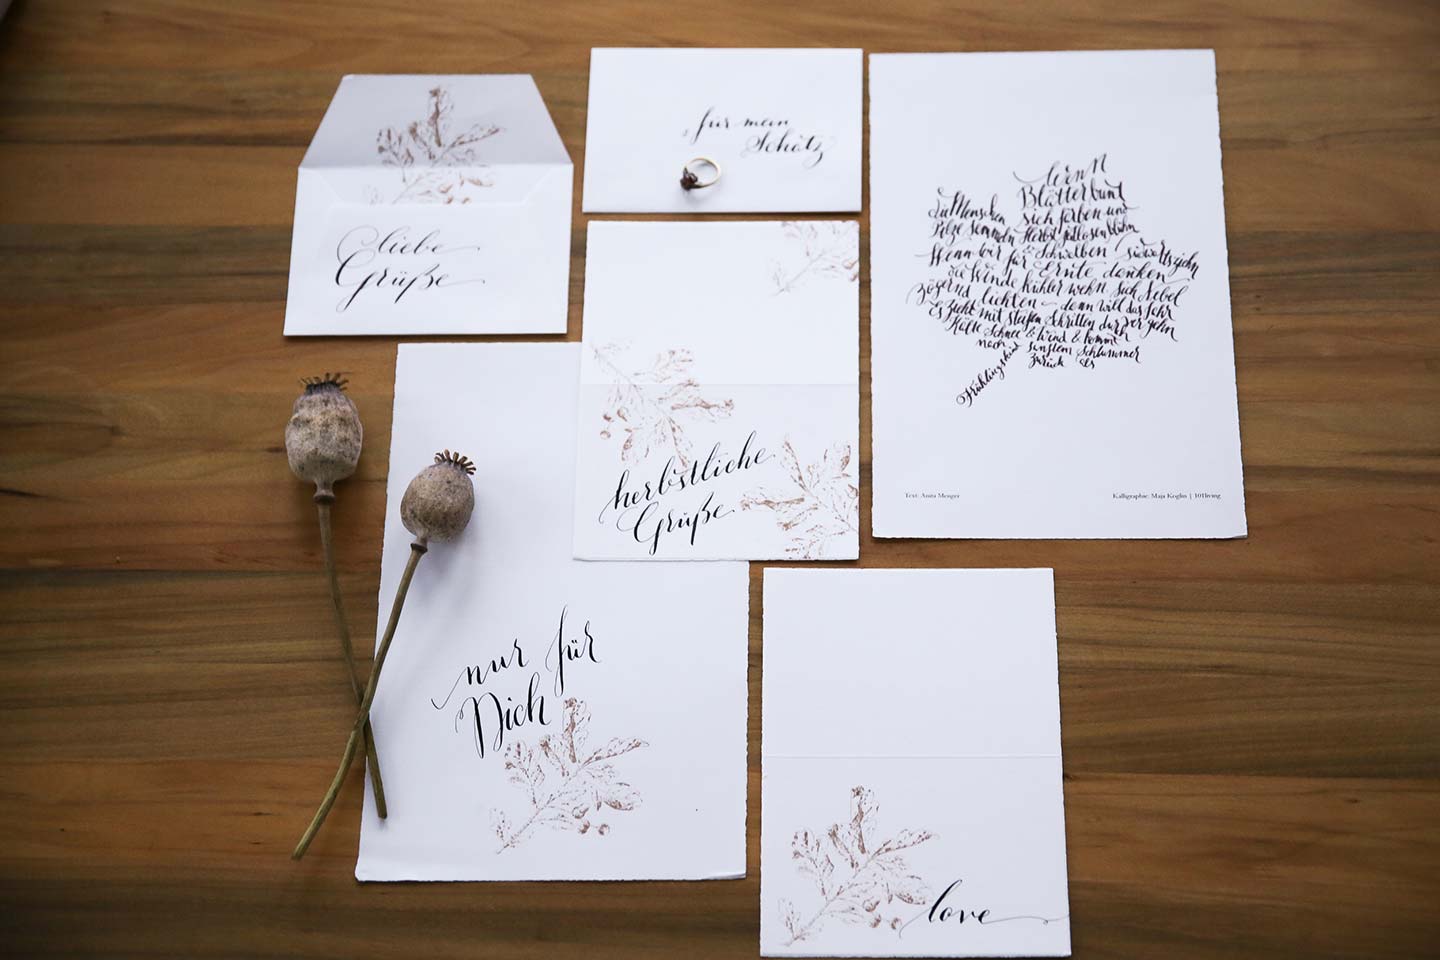 liebe
Grüße
für mein
Schatz
lernn
Blätterbunt
Die Menschen sich färben und
Pelze sammeln Herbst
Wenn wir für Schwalben südwärtsziehn
die Winde kühler wehn Ernte danken
zögernd lichten denn will das Jahr sich Nebel
Es zieht mit steifen Schritten
Kälte Schnee & Wind & kommt
nach sanftem Schlummer
Frühlingskind zurück Es
Text: Anita Menger
Kalligraphie: Maja Koglin | 101living
herbstliche
Grüße
nur für
Dich
love